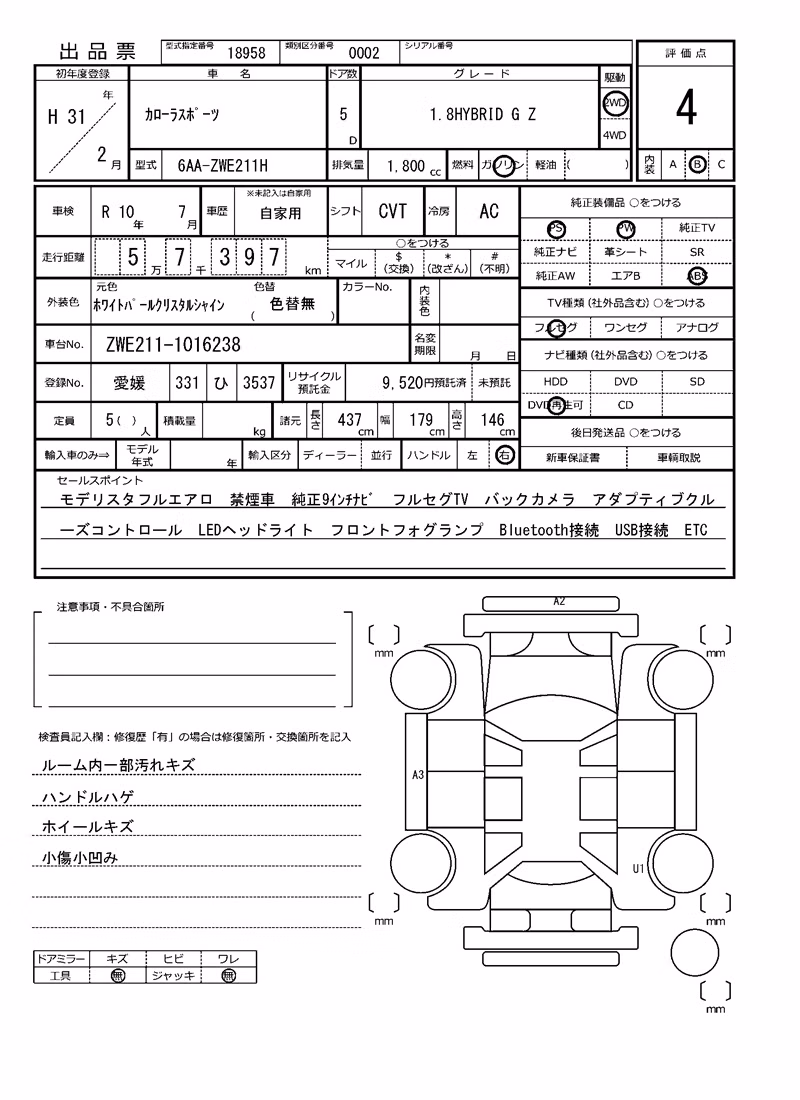 出品票 型式指定番号 18958 類別区分番号 0002 シリアル番号
評価点
4
内装 A B C
初年度登録 車名 ドア数 グレード 駆動
H 31 年 2 月
カローラスポーツ
5 D
1.8HYBRID G Z
2WD
4WD
型式 6AA-ZWE211H 排気量 1,800 cc 燃料 ガソリン 軽油 ( )
車検 R 10 年 7 月 車歴 ※未記入は自家用 自家用 シフト CVT 冷房 AC
走行距離 5 万 7 千 3 9 7 km
○をつける
マイル $(交換) *(改ざん) #(不明)
外装色 元色 ホワイトパールクリスタルシャイン 色替 ( 色替無 ) カラーNo. 内装色
車台No. ZWE211-1016238 名変期限 月 日
登録No. 愛媛 331 ひ 3537 リサイクル預託金 9,520円預託済 未預託
定員 5( ) 人 積載量 kg 諸元 長さ 437 cm 幅 179 cm 高さ 146 cm
輸入車のみ⇒ モデル年式 年 輸入区分 ディーラー 並行 ハンドル 左 右
純正装備品 ○をつける
PS PW 純正TV
純正ナビ 革シート SR
純正AW エアB ABS
TV種類(社外品含む)○をつける
フルセグ ワンセグ アナログ
ナビ種類(社外品含む)○をつける
HDD DVD SD
DVD再生可 CD
後日発送品 ○をつける
新車保証書 車輌取説
セールスポイント
モデリスタフルエアロ 禁煙車 純正9インチナビ フルセグTV バックカメラ アダプティブクル
ーズコントロール LEDヘッドライト フロントフォグランプ Bluetooth接続 USB接続 ETC
注意事項・不具合箇所
検査員記入欄：修復歴「有」の場合は修復箇所・交換箇所を記入
ルーム内一部汚れキズ
ハンドルハゲ
ホイールキズ
小傷小凹み
ドアミラー キズ ヒビ ワレ
工具 無 ジャッキ 無
A2
mm
mm
A3
U1
mm
mm
mm